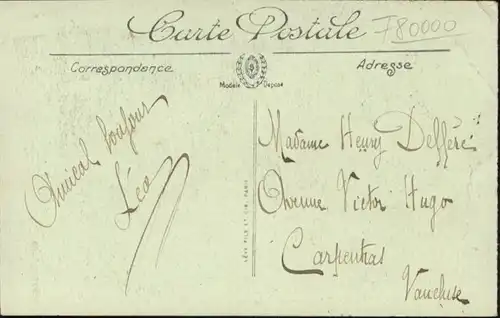 Carte Postale
F80000
Correspondance
Adresse
Modèle Déposé
Amical bonjour
Léa
LÉVY FILS ET CIE, PARIS
Madame Henry Deffère
Avenue Victor Hugo
Carpentras
Vaucluse